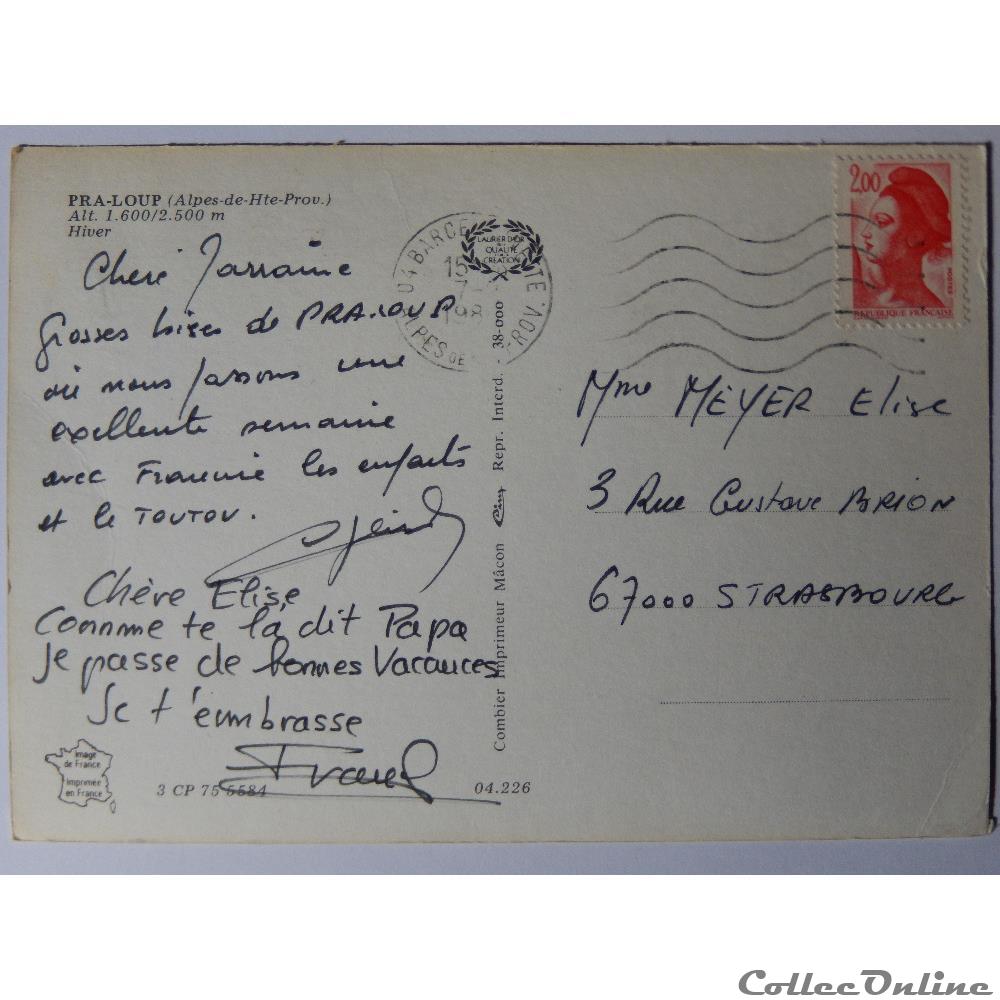 PRA-LOUP (Alpes-de-Hte-Prov.)
Alt. 1.600/2.500 m
Hiver
Chere Marraine
Grosses bises de PRA.LOUP
où nous passons une
excellente semaine
avec Francine les enfants
et le TOUTOU.
Chère Elise,
Comme te la dit Papa
Je passe de bonnes Vacances
Je t'embrasse
Franck
Image
de France
Imprimée
en France
3 CP 75 5584
04.226
Combier Imprimeur Mâcon Cim Repr. Interd. - 38-000
LAURIER D'OR
QUALITÉ
CRÉATION
04 BARCE
15
7
198
2,00
POSTES
REPUBLIQUE FRANÇAISE
Mme MEYER Elise
3 Rue Gustave BRION
67000 STRASBOURG
CollecOnline